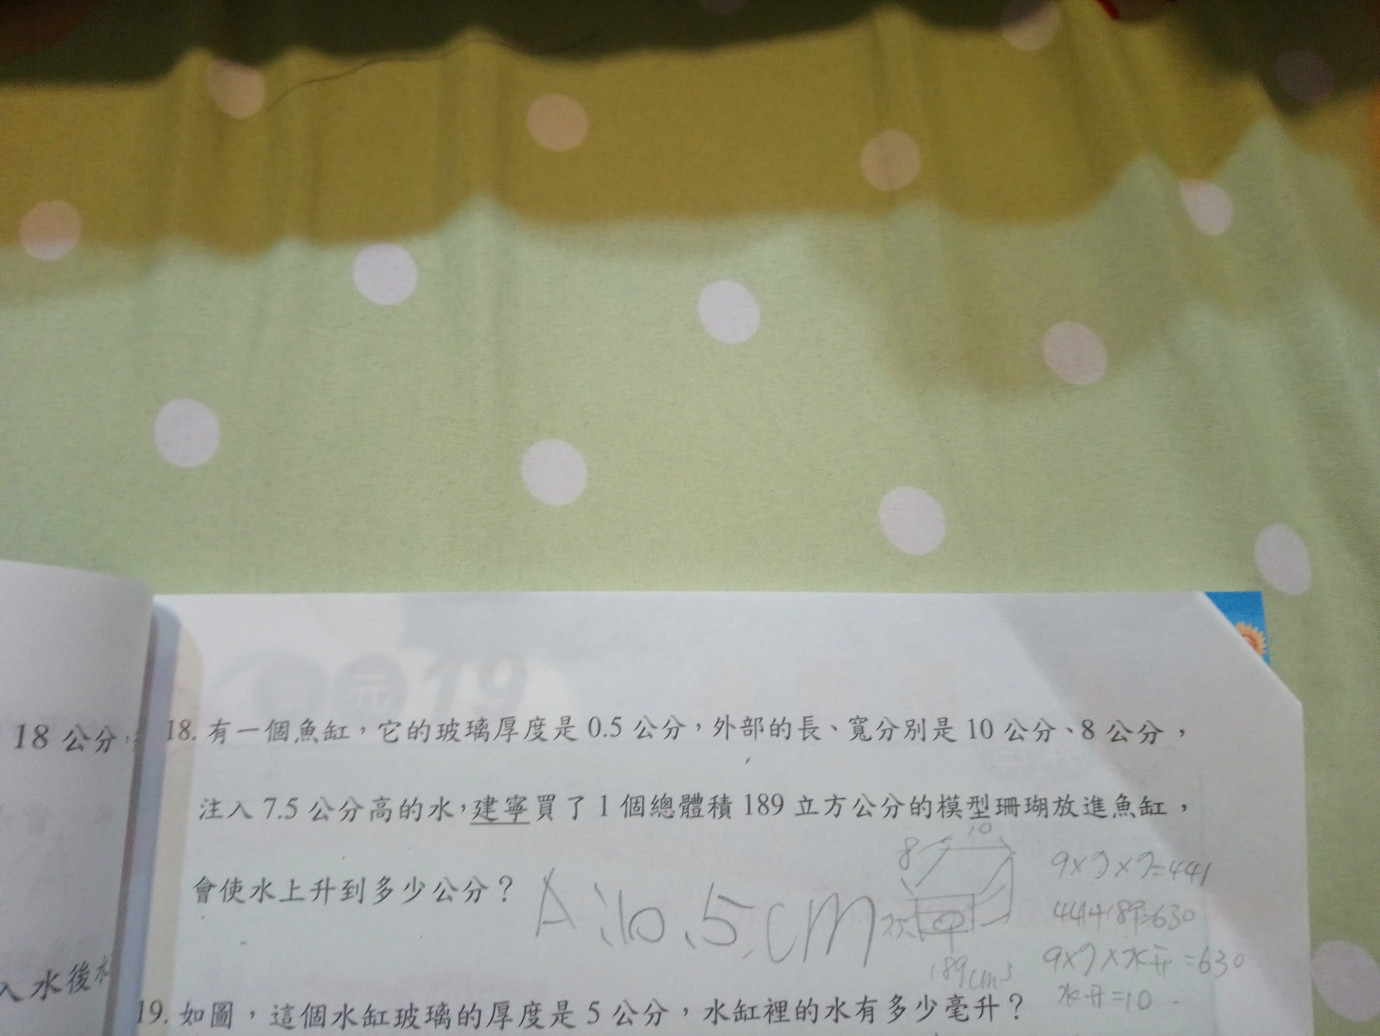 單元19
18公分,
18. 有一個魚缸，它的玻璃厚度是0.5公分，外部的長、寬分別是10公分、8公分，
注入7.5公分高的水，建寧買了1個總體積189立方公分的模型珊瑚放進魚缸，
會使水上升到多少公分？
A:10.5cm
10
8
7.5
189cm³
9×7×7=441
441+189=630
9×7×水升=630
水升=10
入水後水
19. 如圖，這個水缸玻璃的厚度是5公分，水缸裡的水有多少毫升？